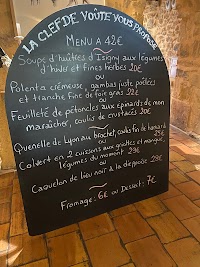 LA CLEF DE VOÛTE VOUS PROPOSE
MENU À 42€
Soupe d'huîtres d'Isigny aux légumes
d'hiver et fines herbes 20€
ou
Polenta crémeuse, gambas juste poêlées
et tranche fine de foie gras 22€
ou
Feuilleté de pétoncles aux épinards de mon
maraîcher, coulis de crustacés 20€
Quenelle de Lyon au brochet, coulis fin de homard
25€
Colvert en 2 cuissons aux griottes et mangue,
légumes du moment 29€
ou
Caquelon de lieu noir à la dieppoise 23€
Fromage: 6€ ou Dessert: 7€